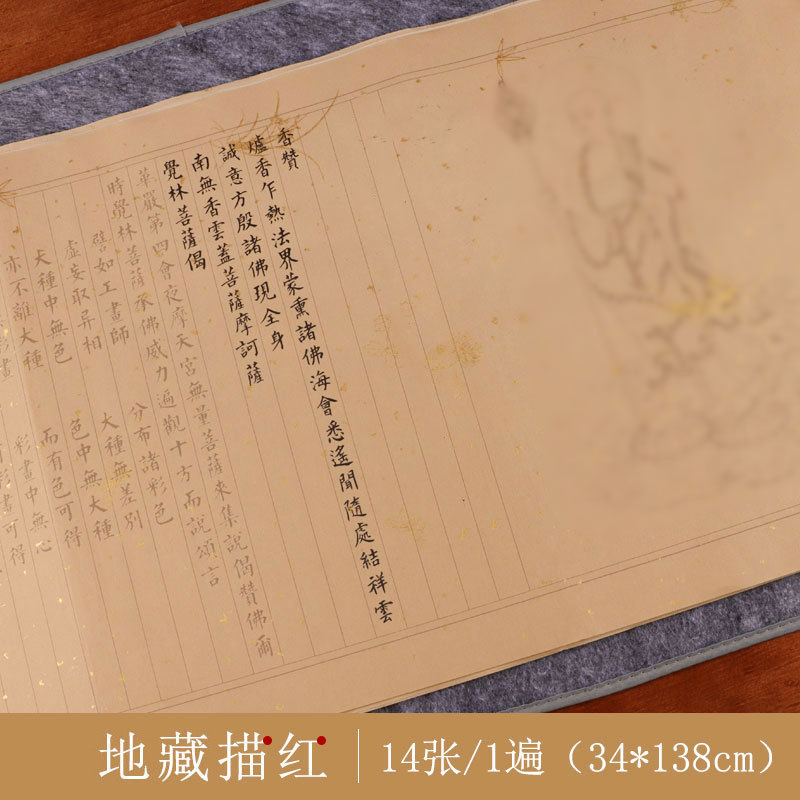 香贊
爐香乍熱法界蒙熏諸佛海會悉遙聞隨處結祥雲
誠意方殷諸佛現全身
南無香雲蓋菩薩摩訶薩
覺林菩薩偈
華嚴第四會夜摩天宮無量菩薩來集說偈贊佛爾
時覺林菩薩承佛威力遍觀十方而說頌言
譬如工畫師 分布諸彩色
虛妄取异相 大種無差別
大種中無色 色中無大種
亦不離大種 而有色可得
彩畫 彩畫中無心
彩畫可得
地藏描红 14张/1遍（34*138cm）